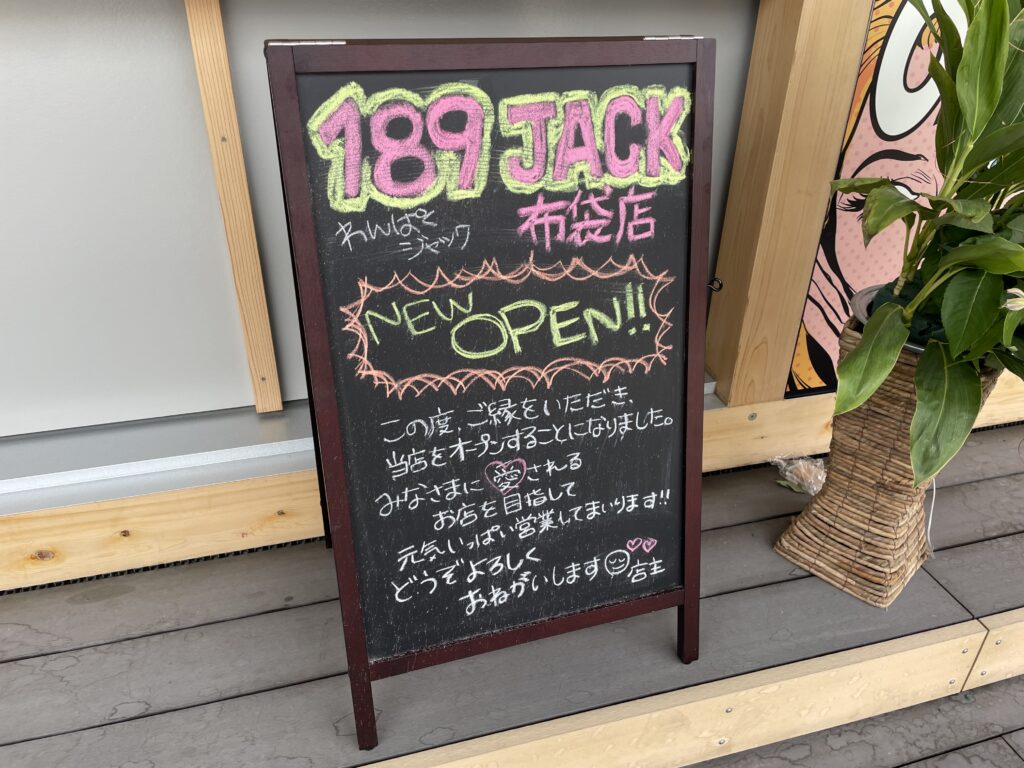 189 JACK
わんぱく
ジャック
布袋店
NEW
OPEN!!
この度、ご縁をいただき、
当店をオープンすることになりました。
みなさまに愛される
お店を目指して
元気いっぱい営業してまいります!!
どうぞよろしく
おねがいします
店主